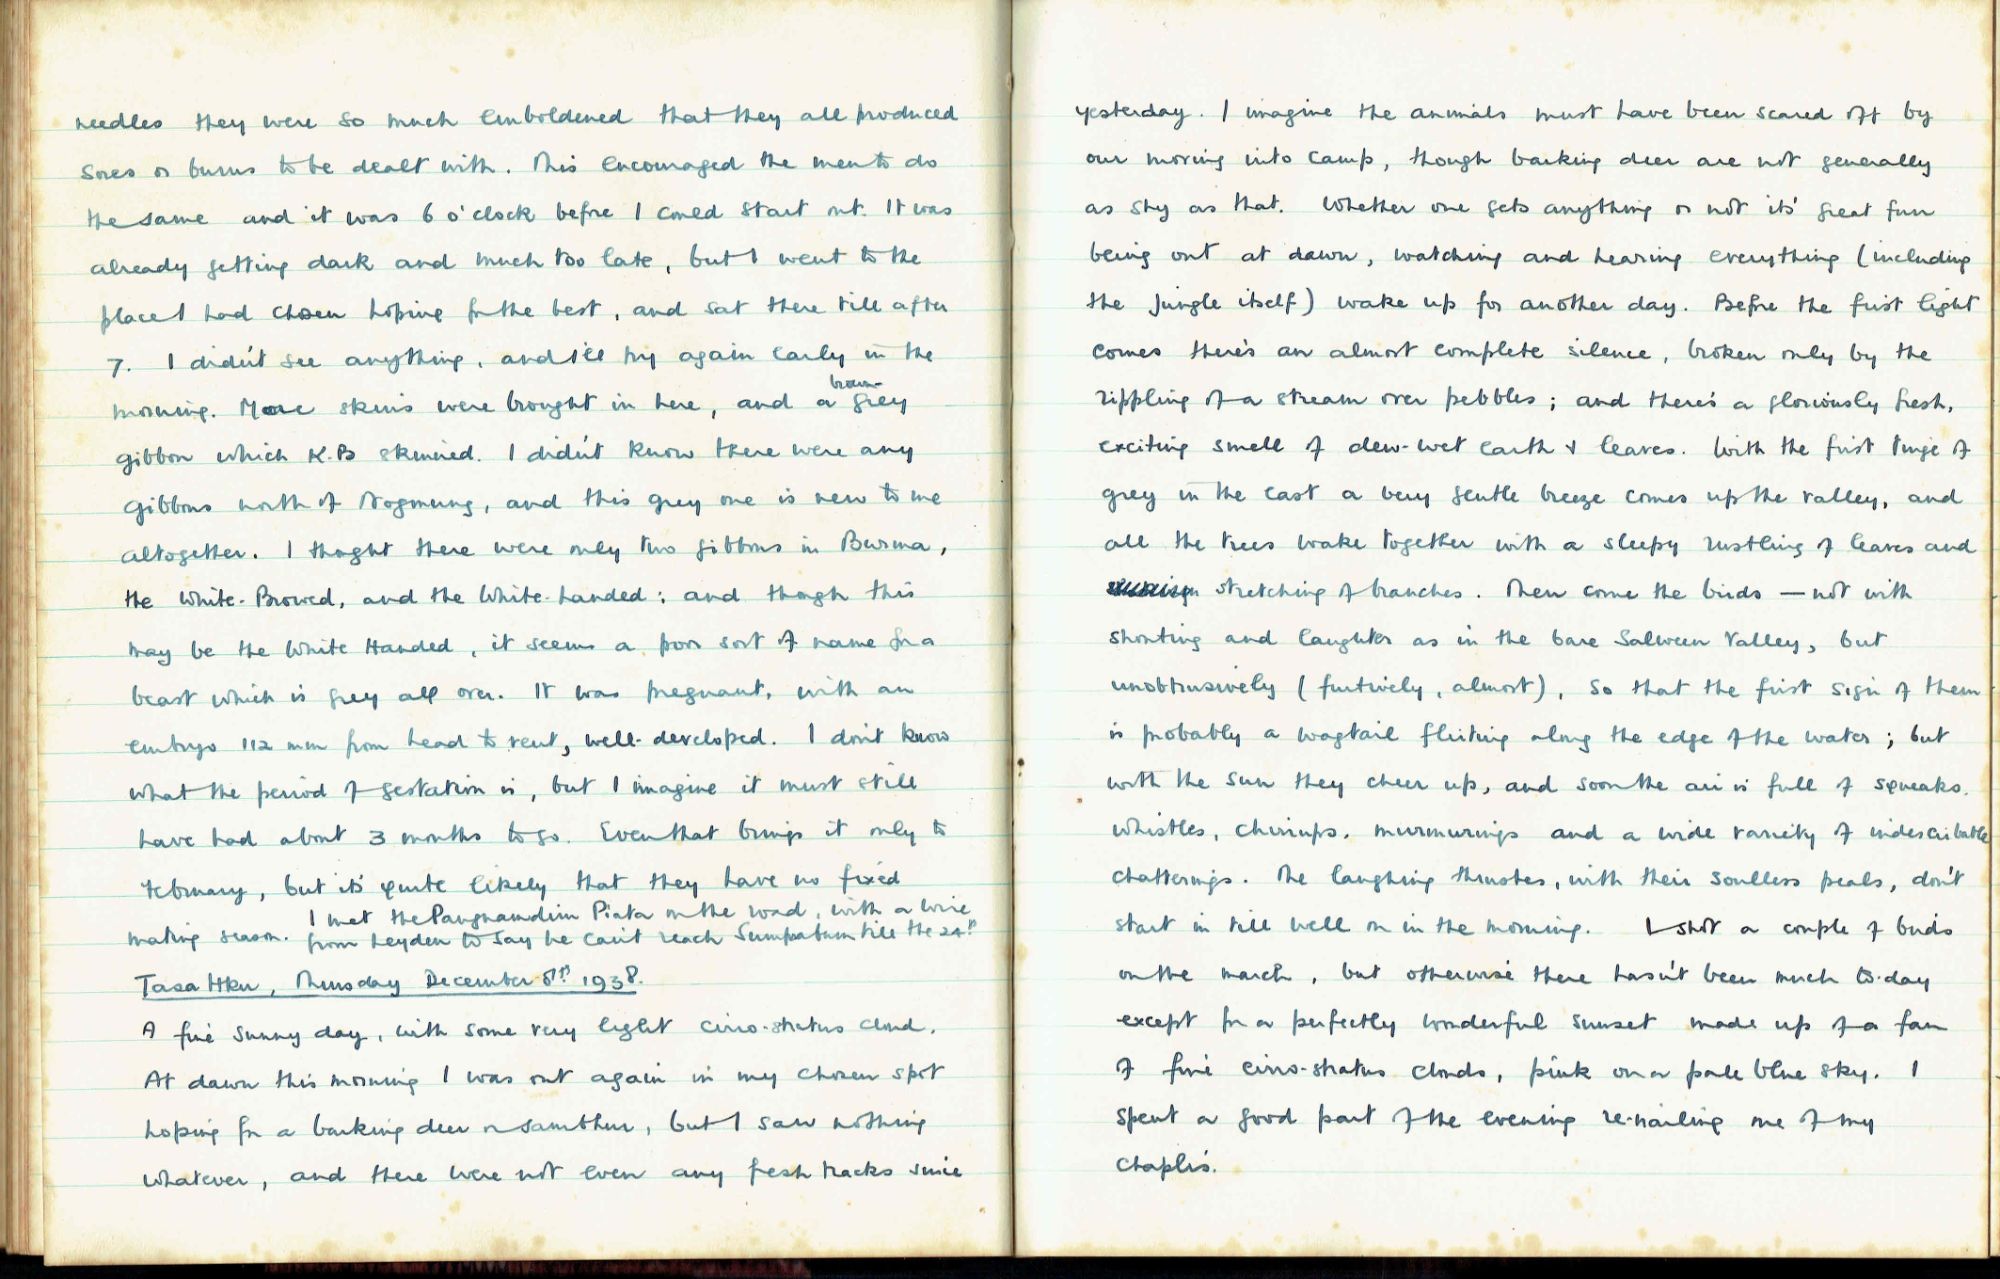 needles they were so much emboldened that they all produced
sores or burns to be dealt with. This encouraged the men to do
the same and it was 6 o'clock before I could start out. It was
already getting dark and much too late, but I went to the
place I had chosen hoping for the best, and sat there till after
7. I didn't see anything, and I'll try again early in the
morning. More skins were brought in here, and a brown-grey
gibbon which K.B skinned. I didn't know there were any
gibbons north of Nogmung, and this grey one is new to me
altogether. I thought there were only two gibbons in Burma,
the White-Browed, and the White-handed; and though this
may be the White Handed, it seems a poor sort of name for a
beast which is grey all over. It was pregnant, with an
embryo 112 mm from head to vent, well-developed. I don't know
what the period of gestation is, but I imagine it must still
have had about 3 months to go. Even that brings it only to
February, but it's quite likely that they have no fixed
mating season. I met the Pangnamdim Piata on the road, with a wire
from Leyden to say he can't reach Sumprabum till the 24th
Tasa Hku, Thursday December 8th 1938.
A fine sunny day, with some very light cirro-stratus cloud.
At dawn this morning I was out again in my chosen spot
hoping for a barking deer or sambhur, but I saw nothing
whatever, and there were not even any fresh tracks since
yesterday. I imagine the animals must have been scared off by
our moving into camp, though barking deer are not generally
as shy as that. Whether one gets anything or not it's great fun
being out at dawn, watching and hearing everything (including
the jungle itself) wake up for another day. Before the first light
comes there's an almost complete silence, broken only by the
rippling of a stream over pebbles; and there's a gloriously fresh,
exciting smell of dew-wet earth & leaves. With the first tinge of
grey in the east a very gentle breeze comes up the valley, and
all the trees wake together with a sleepy rustling of leaves and
stretching of branches. Then come the birds — not with
shouting and laughter as in the bare Salween Valley, but
unobtrusively (furtively, almost), so that the first sign of them
is probably a wagtail flirting along the edge of the water; but
with the sun they cheer up, and soon the air is full of squeaks,
whistles, chirrups, murmurings and a wide variety of indescribable
chatterings. The laughing thrushes, with their soulless peals, don't
start in till well on in the morning. I shot a couple of birds
on the march, but otherwise there hasn't been much to-day
except for a perfectly wonderful sunset made up of a fan
of fine cirro-stratus clouds, pink on a pale blue sky. I
spent a good part of the evening re-nailing one of my
chaplis.